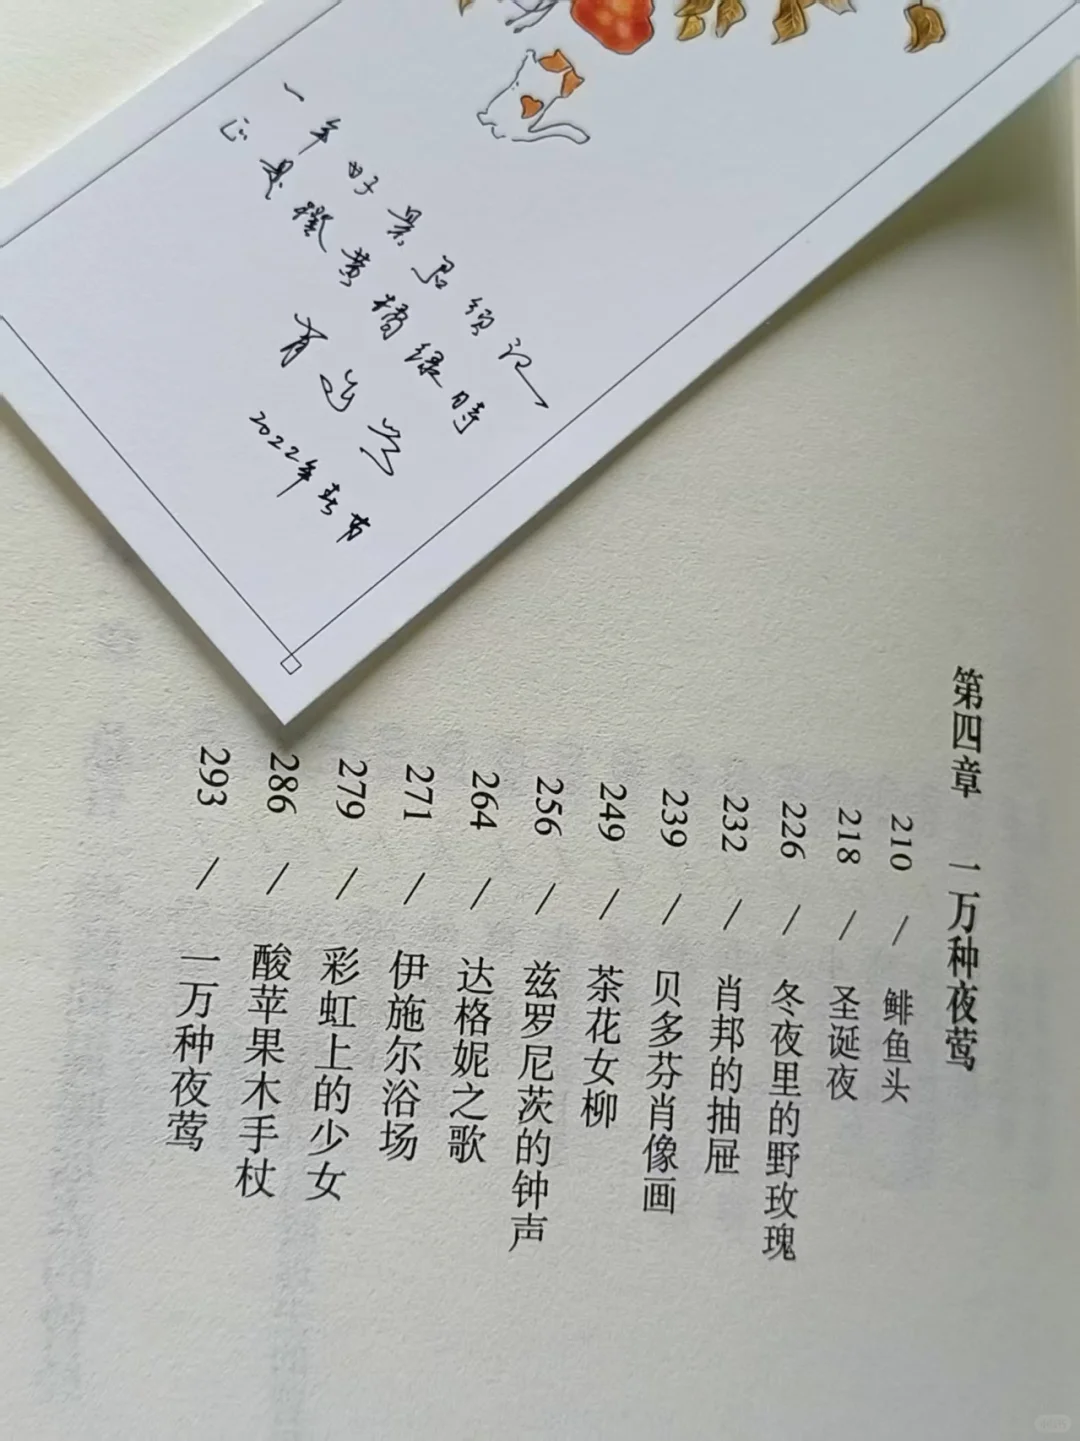 一年好景君须记
正是橙黄橘绿時
肖复兴
2022年春节
第四章 一万种夜莺
210 / 鲱鱼头
218 / 圣诞夜
226 / 冬夜里的野玫瑰
232 / 肖邦的抽屉
239 / 贝多芬肖像画
249 / 茶花女柳
256 / 兹罗尼茨的钟声
264 / 达格妮之歌
271 / 伊施尔浴场
279 / 彩虹上的少女
286 / 酸苹果木手杖
293 / 一万种夜莺